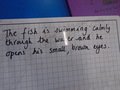 The fish is swimming calmly
through the water and he
opens his small, brown eyes.